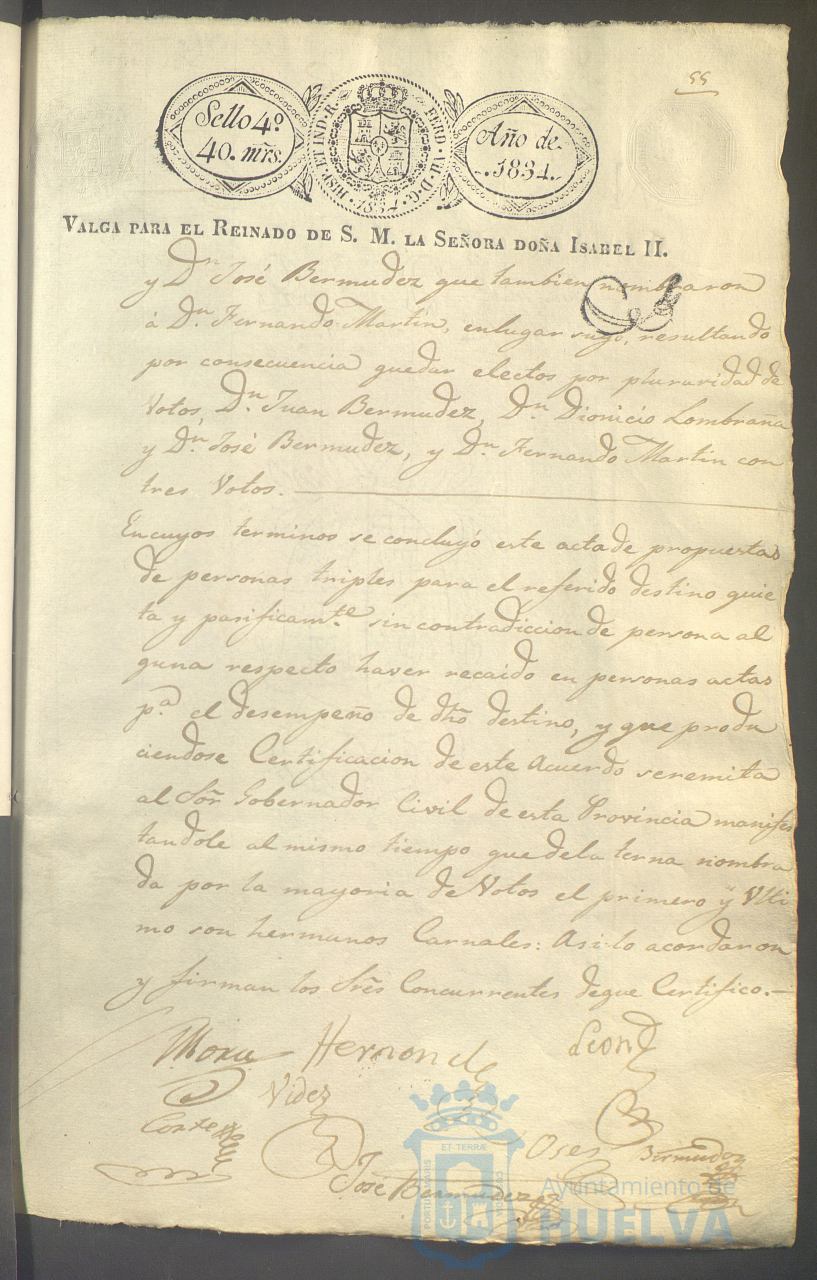 55
Sello 4º
40. mrs.
HISP. ET IND. R. FERD. VII. D. G.
1834
Año de
1834.
VALGA PARA EL REINADO DE S. M. LA SEÑORA DOÑA ISABEL II.
y Dn José Bermudez que tambien nombraron
á Dn Fernando Martin, enlugar suyo, resultando
por consecuencia quedar electos por pluraridad de
Votos, Dn Juan Bermudez, Dn Dionicio Lombraña
y Dn José Bermudez, y Dn Fernando Martin con
tres Votos.
En cuyos terminos se concluyó este acta de propuestas
de personas triples para el referido destino quie
ta y pasificamte sin contradiccion de persona al
guna respecto haver recaido en personas actas
pa el desempeño de dho destino, y que produ
ciendose Certificacion de este Acuerdo seremita
al Sor Gobernador Civil de esta Provincia manifes
tandole al mismo tiempo que dela terna nombra
da por la mayoria de Votos el primero y Ulti
mo son hermanos Carnales: Asi lo acordaron
y firman los Sres Concurrentes deque Certifico.
Mora Hernandz Leon
Videz
Bermudez
José Bermudez
ET TERRÆ
Ayuntamiento de
HUELVA